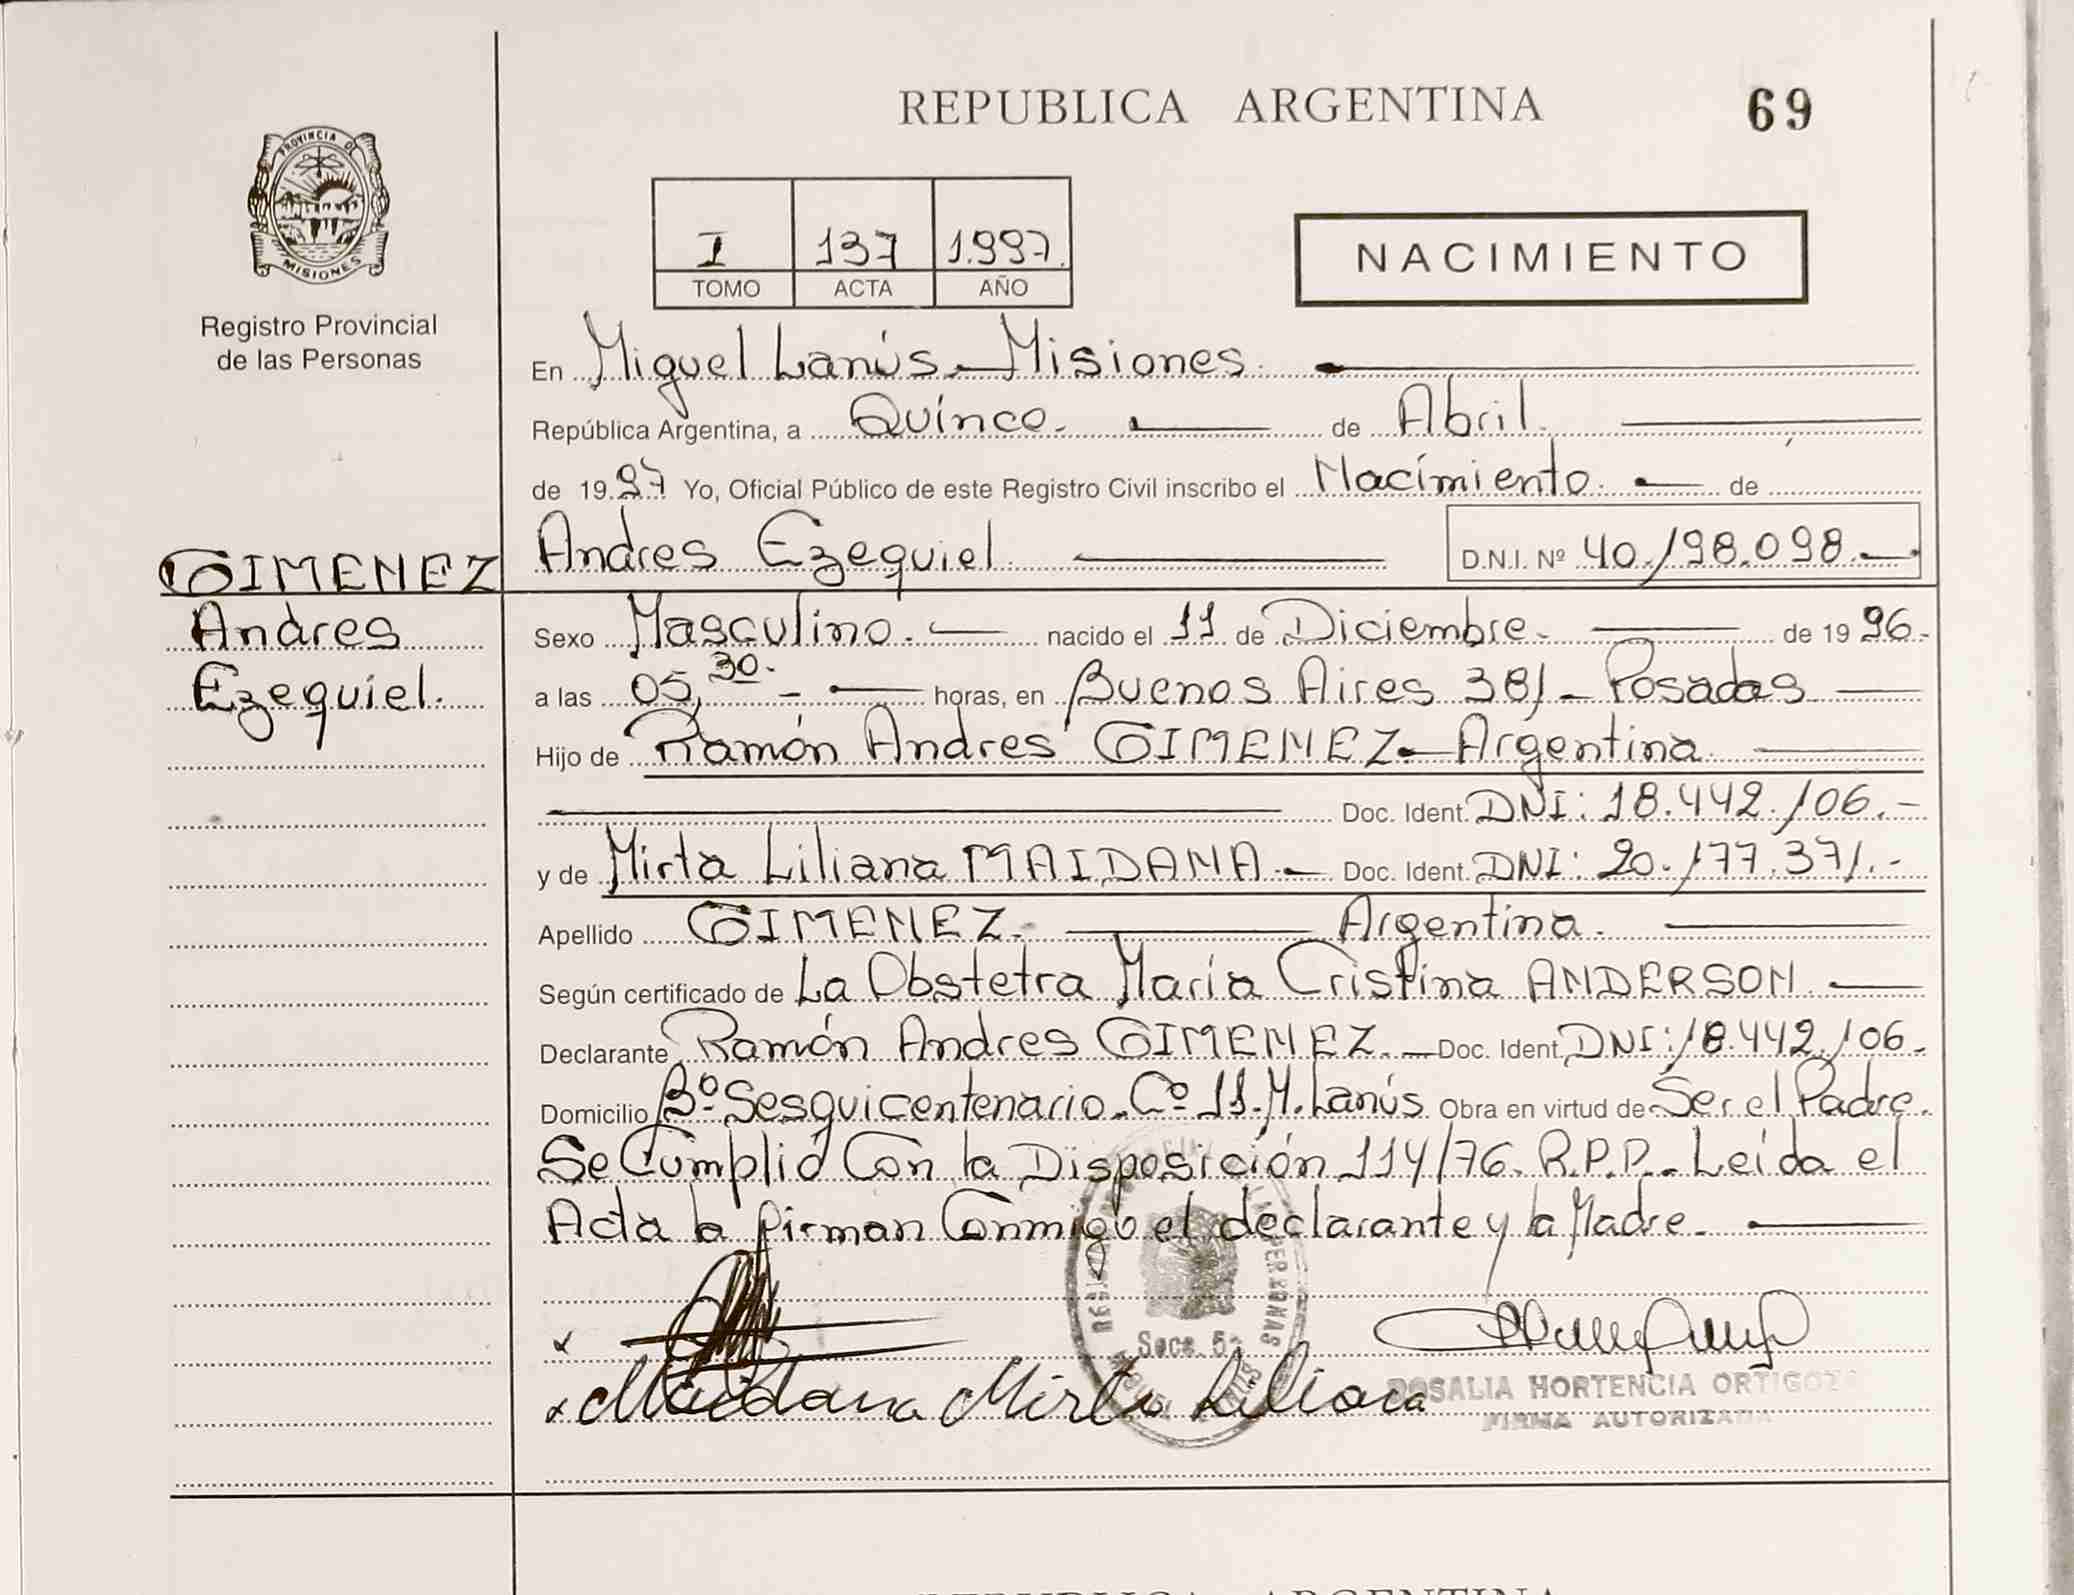 REPUBLICA ARGENTINA
69
PROVINCIA DE
MISIONES
Registro Provincial
de las Personas
I 137 1.997.
TOMO ACTA AÑO
NACIMIENTO
En Miguel Lanús - Misiones.
República Argentina, a Quince. de Abril.
de 1997 Yo, Oficial Público de este Registro Civil inscribo el Nacimiento. de
Andres Ezequiel D.N.I. Nº 40.198.098.-
GIMENEZ
Andres
Ezequiel.
Sexo Masculino. nacido el 11 de Diciembre. de 1996.
a las 05,30.- horas, en Buenos Aires 381 - Posadas
Hijo de Ramón Andres GIMENEZ - Argentina
Doc. Ident. DNI: 18.442.106.-
y de Mirta Liliana MAIDANA.- Doc. Ident. DNI: 20.177.371.-
Apellido GIMENEZ. Argentina.
Según certificado de La Obstetra María Cristina ANDERSON.
Declarante Ramón Andres GIMENEZ. Doc. Ident. DNI: 18.442.106.-
Domicilio Bº Sesquicentenario - Cº 11. M. Lanús Obra en virtud de Ser el Padre.
Se Cumplió Con la Disposición 114/76. R.P.P. - Leída el
Acta la firman Conmigo el declarante y la Madre.
x
x Maidana Mirta Liliana
Secc. 5ª
PERSONAS
ROSALIA HORTENCIA ORTIGOZA
FIRMA AUTORIZADA
REPUBLICA ARGENTINA